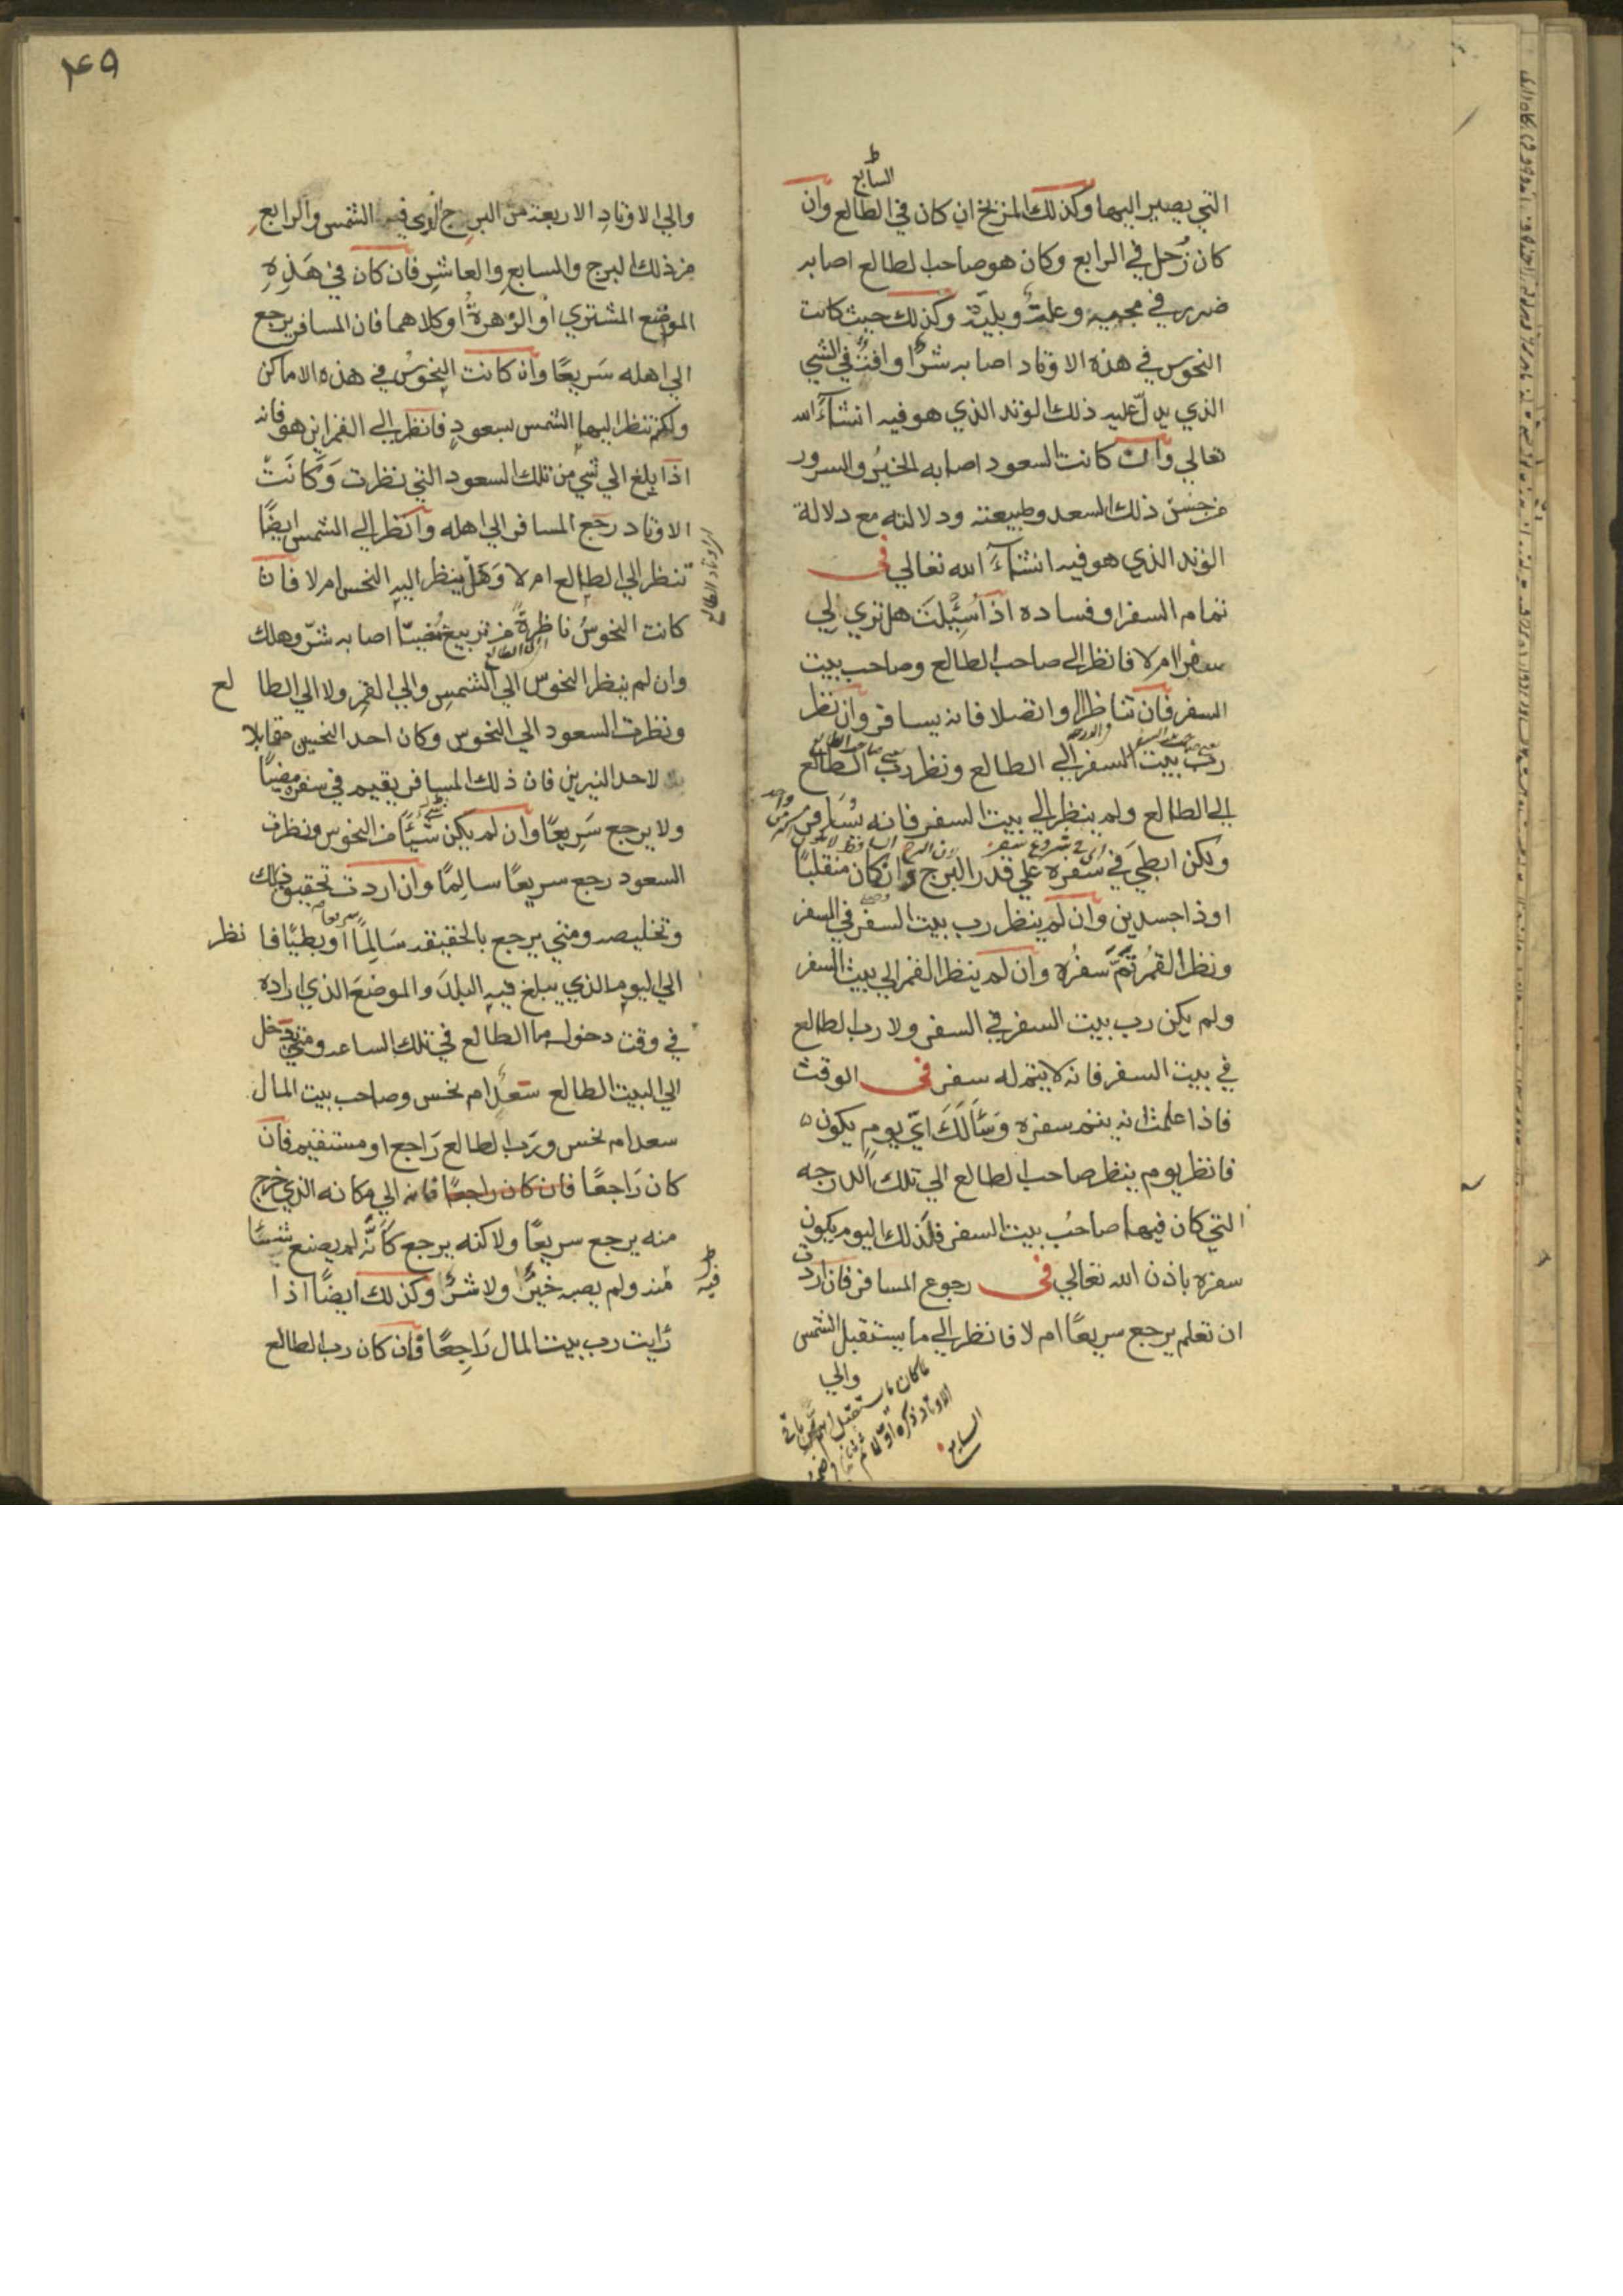 السابع
التي يصير اليها وكذلك المريخ ان كان في الطالع وان
كان زُحل في الرابع وكان هو صاحب الطالع اصابه
ضرر في مجميه وعلتٌ وبليّة وكذلك حيث كانت
النحوس في هذه الاوتاد اصابه شرٌّ او افتٌ في الشي
الذي يدلّ عليه ذلك الوتد الذي هو فيه انشآء الله
تعالي وان كانت السعود اصابه الخيرُ والسرور
من جنس ذلك السعد وطبيعته ودلالته مع دلالة
الوتد الذي هو فيه انشآءَ الله تعالي في
تمام السفر او فساده اذا سُئِلتَ هل تري لي
سفرا ام لا فانظر الي صاحب الطالع وصاحب بيت
السفر فان تناظرا او اتصلا فانه يسافر وان نظر
ربّ بيت السفر الي الطالع ونظر ربّ الطالع
الي الطالع ولم ينظر الي بيت السفر فانه يُسَافر
ولكن ابطي في سفره علي قدر البرج وان كان منقلبًا
او ذا جسدين وان لم ينظر رب بيت السفر في السفر
ونظر القمرُ تمَّ سفرُه وان لم ينظر القمر الي بيت السفر
ولم يكن رب بيت السفر في السفر ولا رب الطالع
في بيت السفر فانه لا يتم له سفر في الوقت
فاذا علمت انه يتم سفره وَسَأَلَكَ ايّ يوم يكون ٥
فانظر يوم ينظر صاحب الطالع الي تلك الدرجه
التي كان فيها صاحبُ بيت السفر فلذلك اليوم يكون
سفره باذن الله تعالي في رجوع المسافر فان اردت
ان تعلم يرجع سريعًا ام لا فانظر الي ما يستقبل الشمس
والي
٤٩
والي الاوتادِ الاربعة من البرج الذي فيه الشمس والرابعِ
من ذلك البرج والسابعِ والعاشرِ فان كان في هَذِهِ
الموضع المشتري او الزهرةُ او كلاهما فان المسافر يرجع
الي اهله سَريعًا وان كانت النحوسُ في هذه الاماكن
ولم تنظر اليها الشمس بسعودٍ فانظر الي القمر اين هو فانه
اذا بلغ الي شي من تلك السعود التي نظرت وَكَانَتْ
الاوتاد رجع المسافر الي اهله وانظر الي الشمس ايضًا
تنظر الي الطالع ام لا وَهَل ينظر اليه النحس ام لا فان
كانت النحوسُ ناظرةً من تربيع اصابه شرّ وهلك
وان لم ينظر النحوس الي الشمسِ والي القمرِ ولا الي الطالع
ونظرت السعود الي النحوس وكان احد النحسين مقابلا
لاحد النيرين فان ذلك المسافر يقيم في سفره
ولا يرجع سَريعًا وان لم يكن شَيْئًا من النحوس ونظرت
السعود رجع سريعًا سالِمًا وان اردت تحقيق ذلك
وتخليصه ومتي يرجع بالحقيقه سَالِمًا او بطيًا فانظر
الي اليوم الذي يبلغ فيه البلدَ والموضعَ الذي اراده
في وقت دخوله ما الطالع في تلك الساعه ومتي يدخل
الي البيت الطالع سَعدٌ ام نحس وصاحب بيت المال
سعد ام نحس ورَب الطالع رَاجع او مستقيم فان
كان رَاجعًا فان كان راجعًا فانه الي مكانه الذي خرج
منه يرجع سريعًا ولاكنه يرجع كأنَّه لم يصنع شيئًا
منه ولم يصبه خيرٌ ولا شرٌ وكذلك ايضًا اذا
فيه
رَايت رب بيت المال رَاجِعًا فان كان رب الطالع